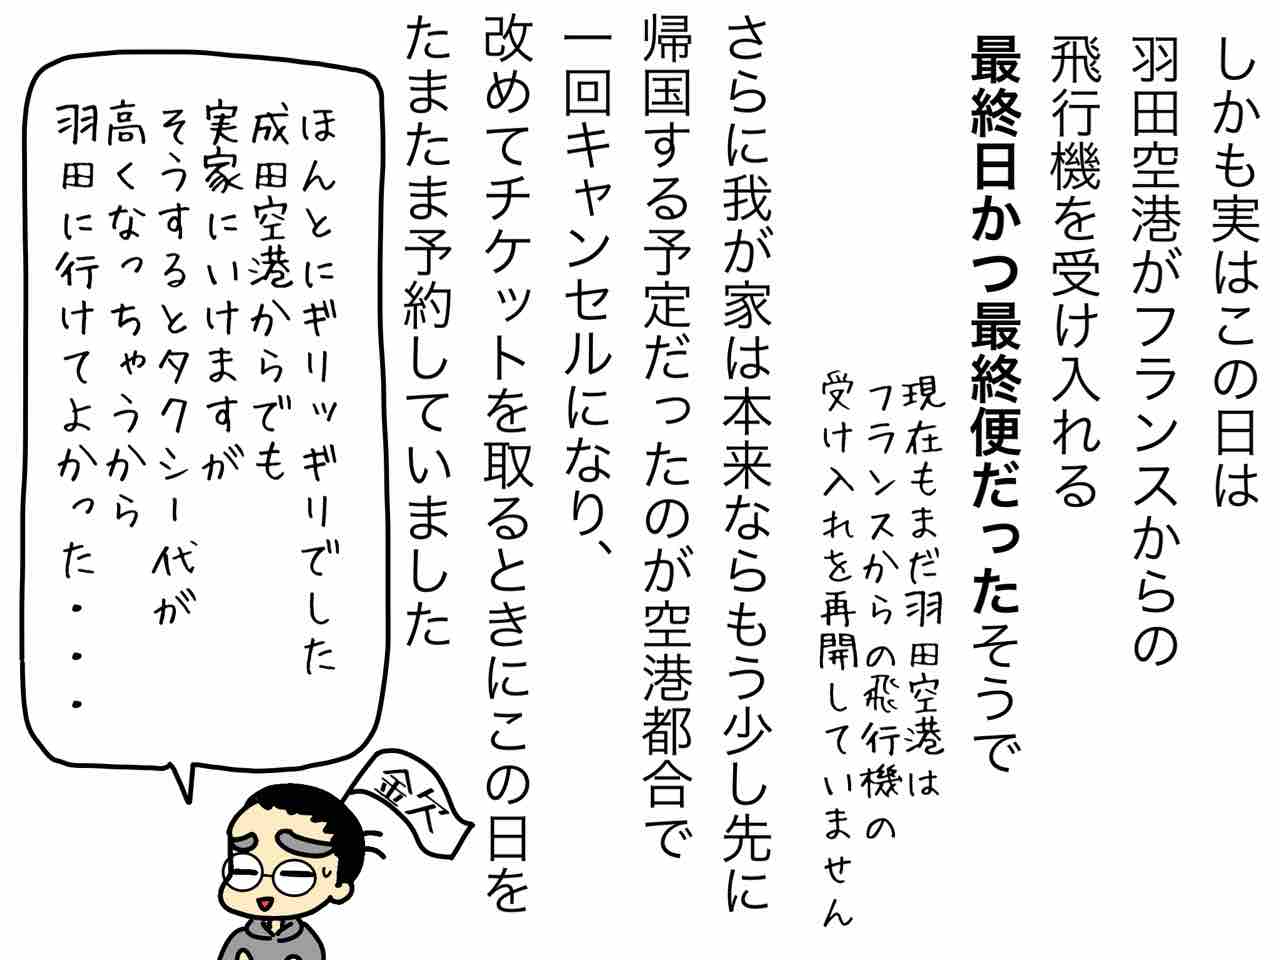 しかも実はこの日は
羽田空港がフランスからの
飛行機を受け入れる
最終日かつ最終便だったそうで
現在もまだ羽田空港は
フランスからの飛行機の
受け入れを再開していません
さらに我が家は本来ならもう少し先に
帰国する予定だったのが空港都合で
一回キャンセルになり、
改めてチケットを取るときにこの日を
たまたま予約していました
ほんとにギリッギリでした
成田空港からでも
実家にいけますが
そうするとタクシー代が
高くなっちゃうから
羽田に行けてよかった・・・
金欠